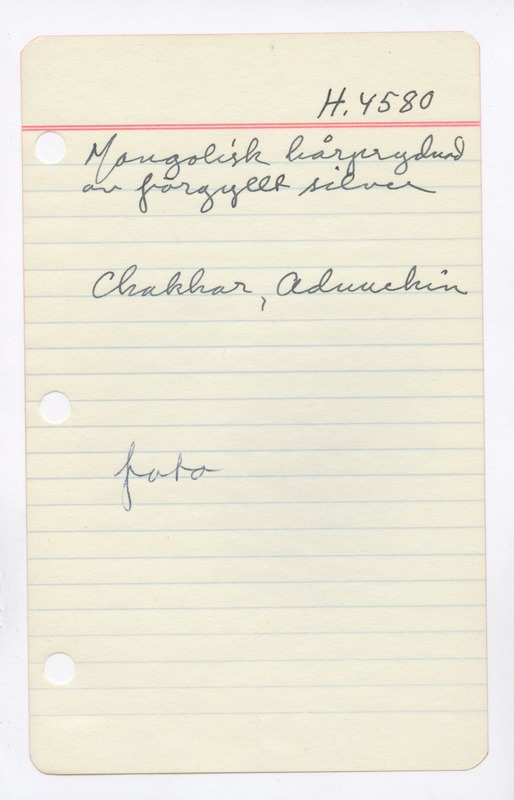 H. 4580
Mongolisk hårprydnad
av förgyllt silver
Chakhar, Aduuchin
foto